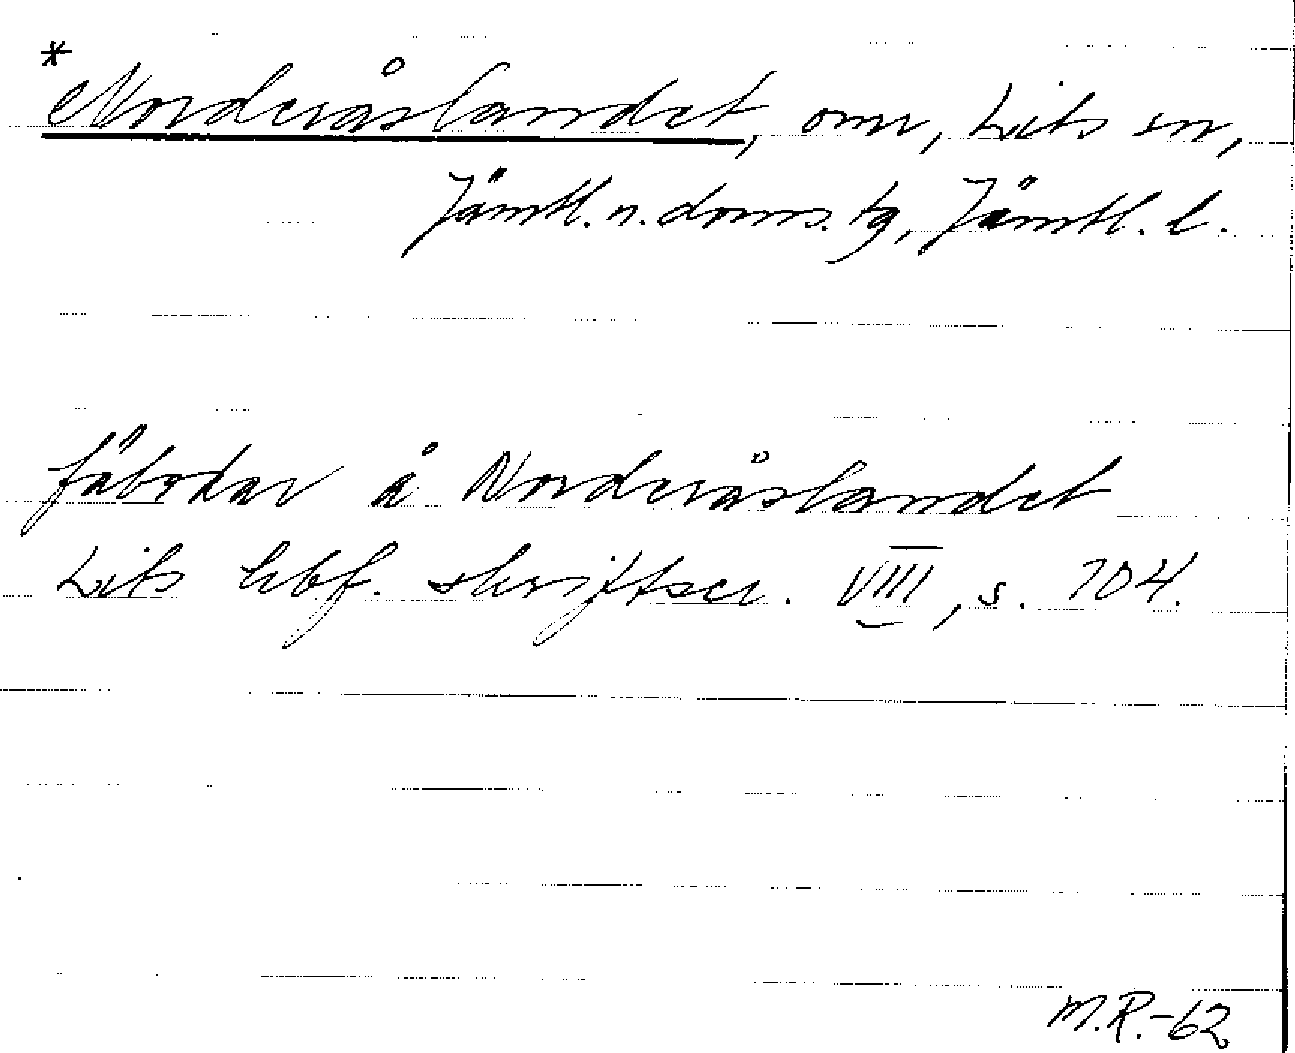 * Norderåslandet, omr, Lits sn,
Jämtl. n. doms. tg, Jämtl. l.
fäbodar å Norderåslandet
Lits hbf. skriftser. VIII, s. 104.
M.R.-62